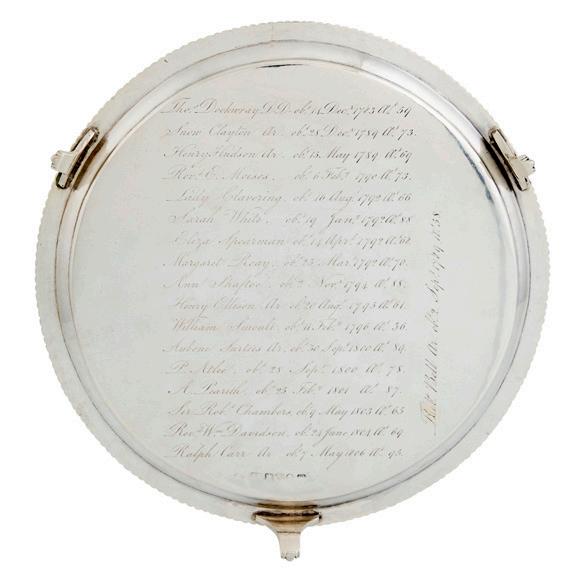 Tho.s Dockwray D.D. ob.t 14 Dec.r 1783 Æt. 59
Snow Clayton Ar. ob.t 28 Dec.r 1789 Æt. 73.
Henry Hudson Ar. ob.t 13 May 1789 Æt. 69
Rev.d E. Moises. ob.t 6 Feb.y 1790 Æt. 73.
Lady Clavering. ob.t 16 Aug. 1792 Æt. 66
Sarah White. ob.t 19 Jan.y 1792 Æt. 88
Eliza Spearman ob.t 14 Apr.l 1792 Æt.
Margaret Reay. ob.t 23 Mar. 1792 Æt. 70.
Ann Shaftoe. ob.t 2 Nov.r 1794 Æt. 88.
Henry Ellison Ar. ob.t 20 Aug.t 1795 Æt. 61.
William ob.t Feb.y 1796 Æt. 36.
Aubone Surties Ar. ob.t 30 Sep.t 1800 Æt. 89.
P. Atlee. ob.t 28 Sep.t 1800 Æt. 78.
A. Pearith. ob.t 23 Feb.y 1801 Æt. 87.
Sir Rob.t Chambers, ob.t 9 May 1803 Æt. 65
Rev.d W.m Davidson. ob.t 24 June 1804 Æt. 69
Ralph Carr Ar. ob.t 7 May 1806 Æt. 95.
Rob.t Bell Ar. ob.t 2 Sep.t 1789 Æt. 58